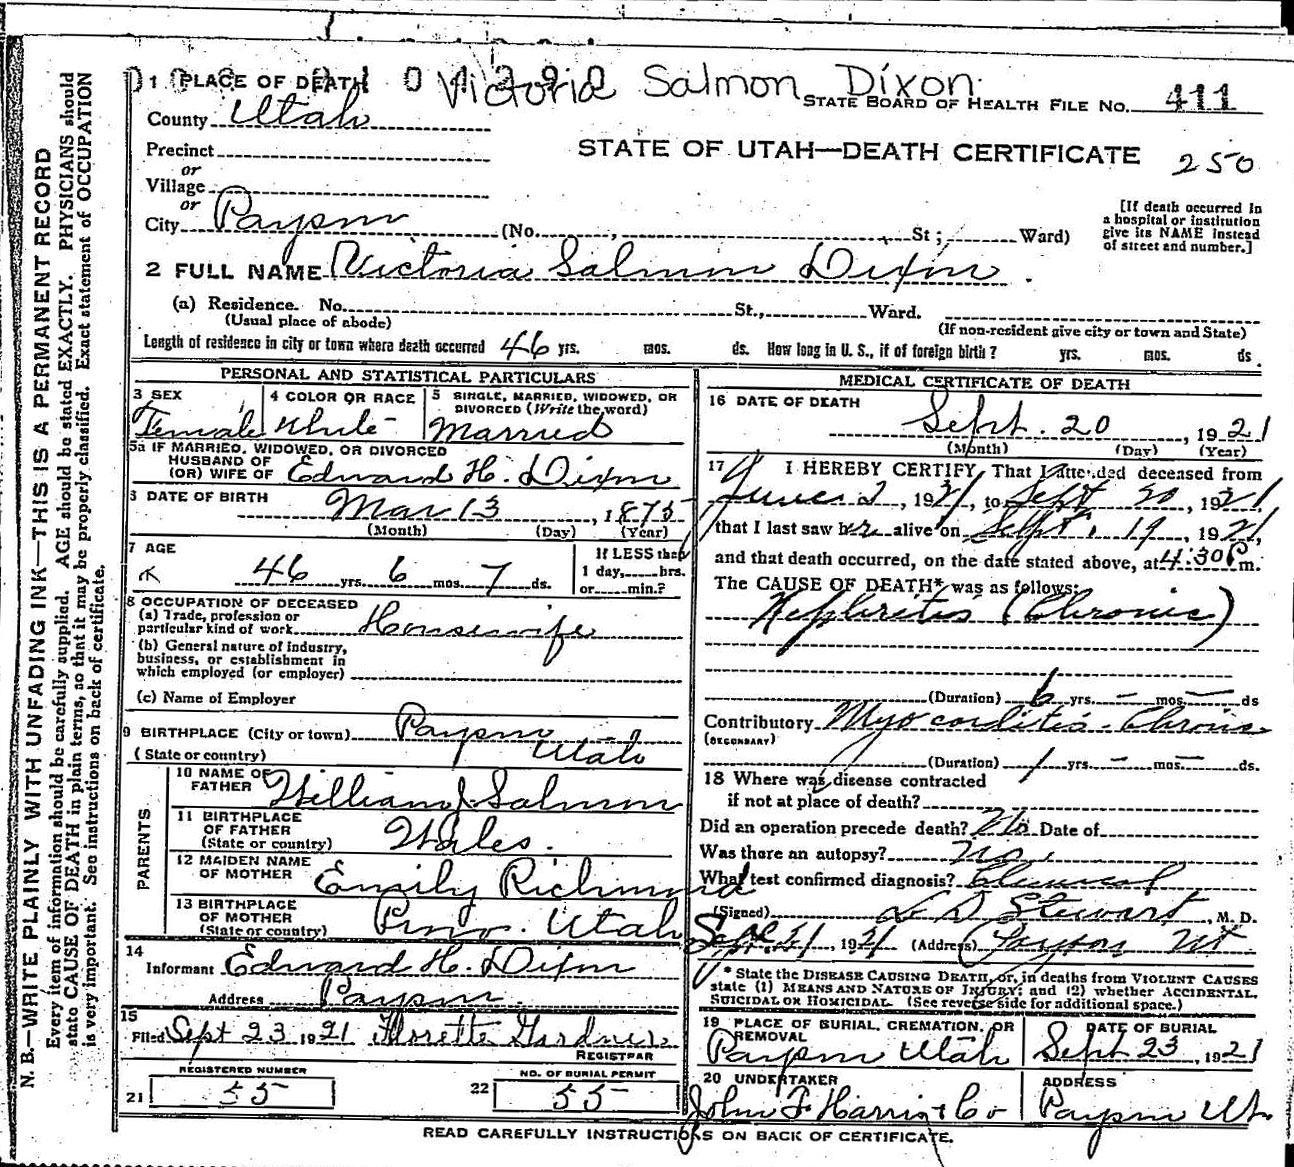 Victoria Salmon Dixon
1 PLACE OF DEATH
STATE BOARD OF HEALTH FILE NO. 411
County Utah
STATE OF UTAH—DEATH CERTIFICATE 250
Precinct
or
Village
or
City Payson (No. , St ; Ward)
[If death occurred in
a hospital or institution
give its NAME instead
of street and number.]
2 FULL NAME Victoria Salmon Dixon
(a) Residence. No. St., Ward.
(Usual place of abode) (If non-resident give city or town and State)
Length of residence in city or town where death occurred 46 yrs. mos. ds. How long in U. S., if of foreign birth? yrs. mos. ds.
PERSONAL AND STATISTICAL PARTICULARS
3 SEX Female
4 COLOR OR RACE White
5 SINGLE, MARRIED, WIDOWED, OR
DIVORCED (Write the word)
Married
5a IF MARRIED, WIDOWED, OR DIVORCED
HUSBAND OF
(OR) WIFE OF Edward H. Dixon
6 DATE OF BIRTH Mar 13, 1875
(Month) (Day) (Year)
7 AGE 46 yrs. 6 mos. 7 ds.
If LESS than
1 day, hrs.
or min.?
8 OCCUPATION OF DECEASED
(a) Trade, profession or
particular kind of work Housewife
(b) General nature of industry,
business, or establishment in
which employed (or employer)
(c) Name of Employer
9 BIRTHPLACE (City or town) Payson
(State or country) Utah
PARENTS
10 NAME OF
FATHER William J. Salmon
11 BIRTHPLACE
OF FATHER
(State or country) Wales.
12 MAIDEN NAME
OF MOTHER Emily Richmond
13 BIRTHPLACE
OF MOTHER
(State or country) Provo. Utah
14
Informant Edward H. Dixon
Address Payson.
15
Filed Sept 23 1921 Florette Gardner
REGISTRAR
REGISTERED NUMBER
21 55
NO. OF BURIAL PERMIT
22 55
MEDICAL CERTIFICATE OF DEATH
16 DATE OF DEATH
Sept. 20, 1921
(Month) (Day) (Year)
17 I HEREBY CERTIFY, That I attended deceased from
June 2, 1921, to Sept 20, 1921
that I last saw her alive on Sept. 19, 1921,
and that death occurred, on the date stated above, at 4:30 P m.
The CAUSE OF DEATH* was as follows:
Nephritis (Chronic)
(Duration) 6 yrs. – mos. – ds
Contributory Myocarditis - Chronic
(SECONDARY)
(Duration) 1 yrs. – mos. – ds.
18 Where was disease contracted
if not at place of death?
Did an operation precede death? No Date of
Was there an autopsy? No.
What test confirmed diagnosis? Clinical
(Signed) L D Stewart, M. D.
Sept. 21, 1921 (Address) Payson Ut
* State the DISEASE CAUSING DEATH, or, in deaths from VIOLENT CAUSES
state (1) MEANS AND NATURE OF INJURY; and (2) whether ACCIDENTAL,
SUICIDAL OR HOMICIDAL. (See reverse side for additional space.)
19 PLACE OF BURIAL, CREMATION, OR
REMOVAL
Payson Utah
DATE OF BURIAL
Sept 23, 1921
20 UNDERTAKER
John F. Harris & Co
ADDRESS
Payson Ut.
READ CAREFULLY INSTRUCTIONS ON BACK OF CERTIFICATE.
N. B.—WRITE PLAINLY WITH UNFADING INK—THIS IS A PERMANENT RECORD
Every item of information should be carefully supplied. AGE should be stated EXACTLY. PHYSICIANS should
state CAUSE OF DEATH in plain terms, so that it may be properly classified. Exact statement of OCCUPATION
is very important. See instructions on back of certificate.